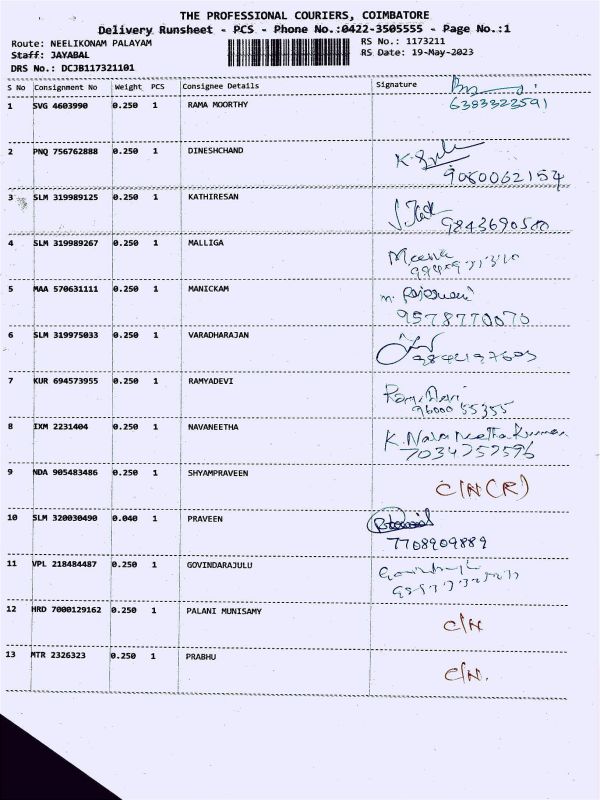 THE PROFESSIONAL COURIERS, COIMBATORE
Delivery Runsheet - PCS - Phone No.:0422-3505555 - Page No.:1
Route: NEELIKONAM PALAYAM
Staff: JAYABAL
DRS No.: DCJB117321101
RS No.: 1173211
RS Date: 19-May-2023
S No Consignment No Weight PCS Consignee Details Signature
1 SVG 4603990 0.250 1 RAMA MOORTHY
6383323591
2 PNQ 756762888 0.250 1 DINESHCHAND
9080062154
3 SLM 319989125 0.250 1 KATHIRESAN
9843690580
4 SLM 319989267 0.250 1 MALLIGA
Meena
5 MAA 570631111 0.250 1 MANICKAM
m. Rajeswari
9578770070
6 SLM 319975033 0.250 1 VARADHARAJAN
7 KUR 694573955 0.250 1 RAMYADEVI
96000 55355
8 IXM 2231404 0.250 1 NAVANEETHA
K. Nava Neetha Kumar
7034252596
9 NDA 905483486 0.250 1 SHYAMPRAVEEN
C/N (R)
10 SLM 320030490 0.040 1 PRAVEEN
7708909889
11 VPL 218484487 0.250 1 GOVINDARAJULU
12 HRD 7000129162 0.250 1 PALANI MUNISAMY
C/N
13 MTR 2326323 0.250 1 PRABHU
C/N.